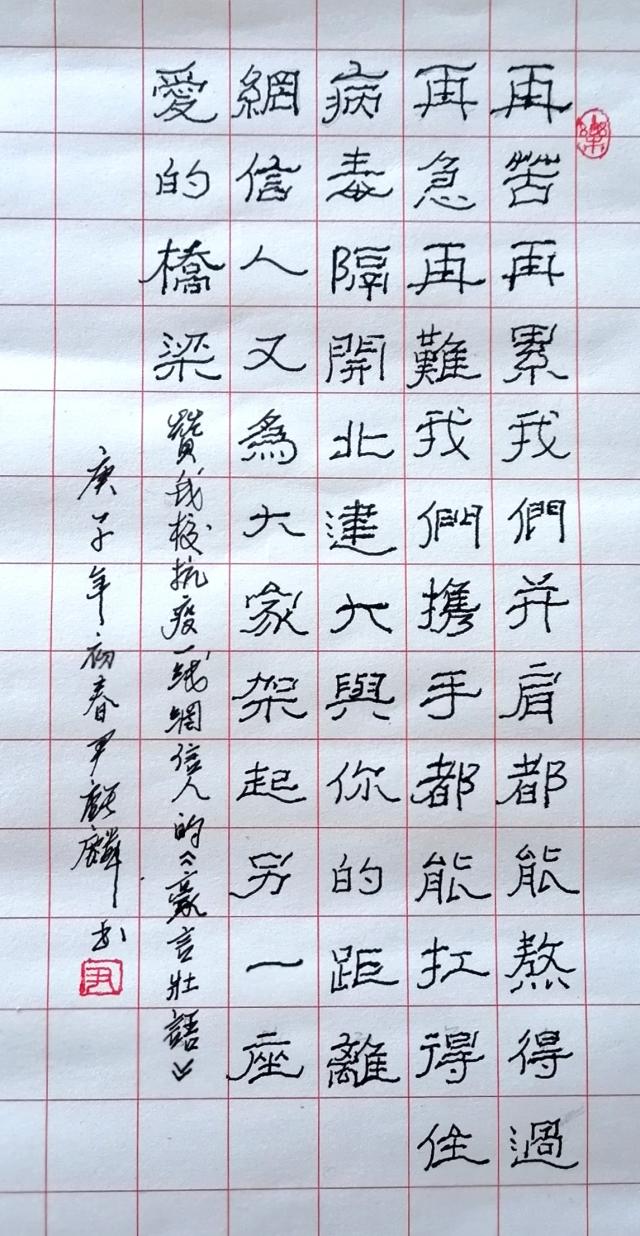 樂
再苦再累我們并肩都能熬得過
再急再難我們携手都能扛得住
病毒隔開北建大與你的距離
網信人又為大家架起另一座
愛的橋梁
贊我校抗疫一线網信人的《豪言壯語》
庚子年初春尹麒麟书
尹